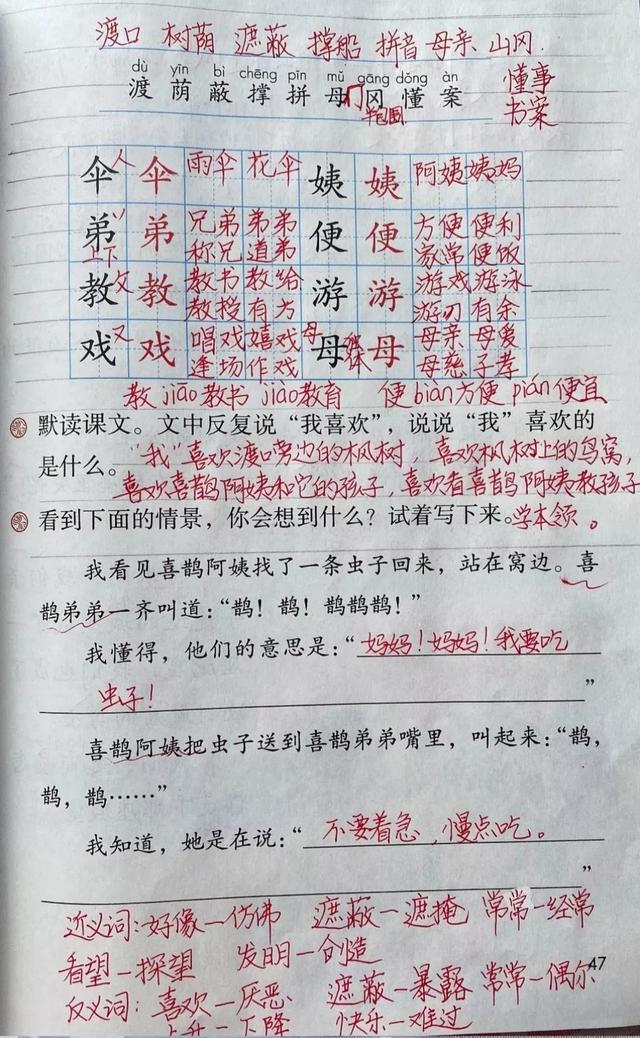 渡口 树荫 遮蔽 撑船 拼音 母亲 山冈
dù yīn bì chēng pīn mǔ gāng dǒng àn
渡 荫 蔽 撑 拼 母 冂 冈 懂 案 懂事
半包围 书案
伞 人 伞 雨伞 花伞 姨 姨 阿姨 姨妈
弟 丷 弟 兄弟 弟弟 便 便 方便 便利
上下 称兄道弟 家常便饭
教 攵 教 教书 教给 游 游 游戏 游泳
教授有方 游刃有余
戏 又 戏 唱戏 嬉戏 母 母 独体 母 母亲 母爱
逢场作戏 母慈子孝
教 jiāo教书 jiào教育 便 biàn方便 pián便宜
默读课文。文中反复说“我喜欢”，说说“我”喜欢的
是什么。“我”喜欢渡口旁边的枫树，喜欢枫树上的鸟窝，
喜欢喜鹊阿姨和它的孩子，喜欢看喜鹊阿姨教孩子
看到下面的情景，你会想到什么？试着写下来。学本领。
我看见喜鹊阿姨找了一条虫子回来，站在窝边。喜
鹊弟弟一齐叫道：“鹊！鹊！鹊鹊鹊！”
我懂得，他们的意思是：“妈妈！妈妈！我要吃
虫子！”
喜鹊阿姨把虫子送到喜鹊弟弟嘴里，叫起来：“鹊，
鹊，鹊……”
我知道，她是在说：“不要着急，慢点吃。
”
近义词：好像—仿佛 遮蔽—遮掩 常常—经常
看望—探望 发明—创造 47
反义词：喜欢—厌恶 遮蔽—暴露 常常—偶尔
上升—下降 快乐—难过